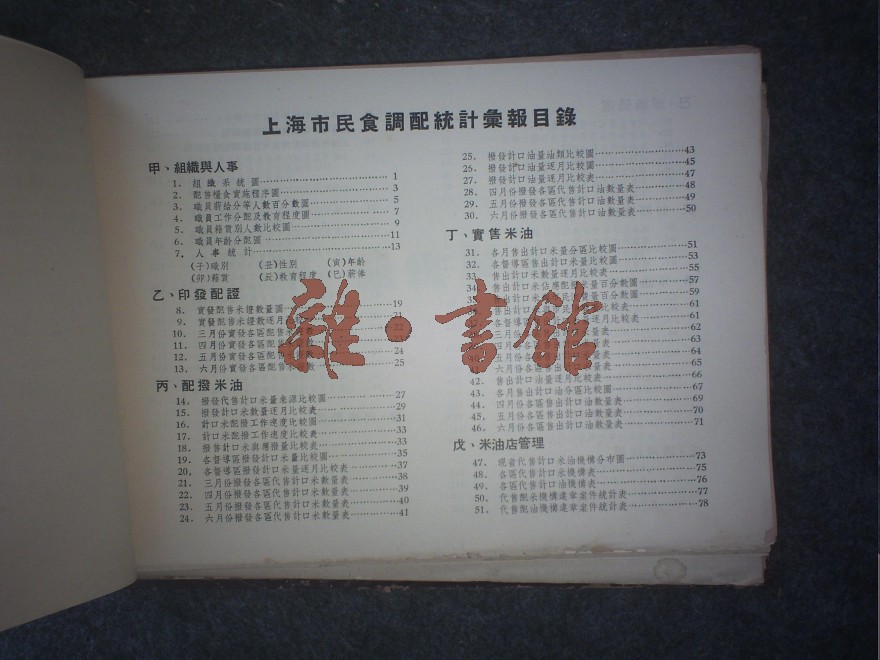 上海市民食調配統計彙報目錄
甲、組織與人事
1. 組織系統圖 1
2. 配售糧食實施程序圖 3
3. 職員薪給分等人數百分數圖 5
4. 職員工作分配及教育程度圖 7
5. 職員籍貫別人數比較圖 9
6. 職員年齡分配圖 11
7. 人事統計 13
(子)職別 (丑)性別 (寅)年齡
(卯)籍貫 (辰)教育程度 (巳)薪俸
乙、印發配證
8. 實發配售米證數量圖 19
9. 實發配售米證數逐月 21
10. 三月份實發各區配售 22
11. 四月份實發各區配售米
12. 五月份實發各區配售 24
13. 六月份實發各區配售米 數 25
丙、配撥米油
14. 撥發代售計口米量來源比較圖 27
15. 撥發計口米數量逐月比較表 29
16. 計口米配撥工作進度比較圖 31
17. 計口米配撥工作進度比較表 33
18. 撥售計口米與應撥量比較圖 33
19. 各督導區撥發計口米量比較圖 35
20. 各督導區撥發計口米量逐月比較表 37
21. 三月份撥發各區代售計口米數量表 38
22. 四月份撥發各區代售計口米數量表 39
23. 五月份撥發各區代售計口米數量表 40
24. 六月份撥發各區代售計口米數量表 41
25. 撥發計口油量油類比較圖 43
26. 撥發計口油量逐月比較圖 45
27. 撥發計口油量逐月比較表 47
28. 四月份撥發各區代售計口油數量表 48
29. 五月份撥發各區代售計口油數量表 49
30. 六月份撥發各區代售計口油數量表 50
丁、實售米油
31. 各月售出計口米量分區比較圖 51
32. 各督導區售出計口米量比較圖 53
33. 售出計口米數量逐月比較表 55
34. 售出計口米佔應配米量百分數圖 57
35. 售出計口米 民 量百分數圖 59
售出計口 量比較表 61
各督導 月比較表 61
三月份 數量表 62
四月 數量表 63
五月 數量表 64
六月份 米數量表 65
42. 售出計口油量逐月比較表 66
43. 各月售出計口油分區比較圖 67
44. 四月份各區售出計口油數量表 69
45. 五月份各區售出計口油數量表 70
46. 六月份各區售出計口油數量表 71
戊、米油店管理
47. 現有代售計口米油機構分布圖 73
48. 各區代售計口米機構表 75
49. 各區代售計口油機構表 76
50. 代售配米機構違章案件統計表 77
51. 代售配油機構違章案件統計表 78
雜·書館